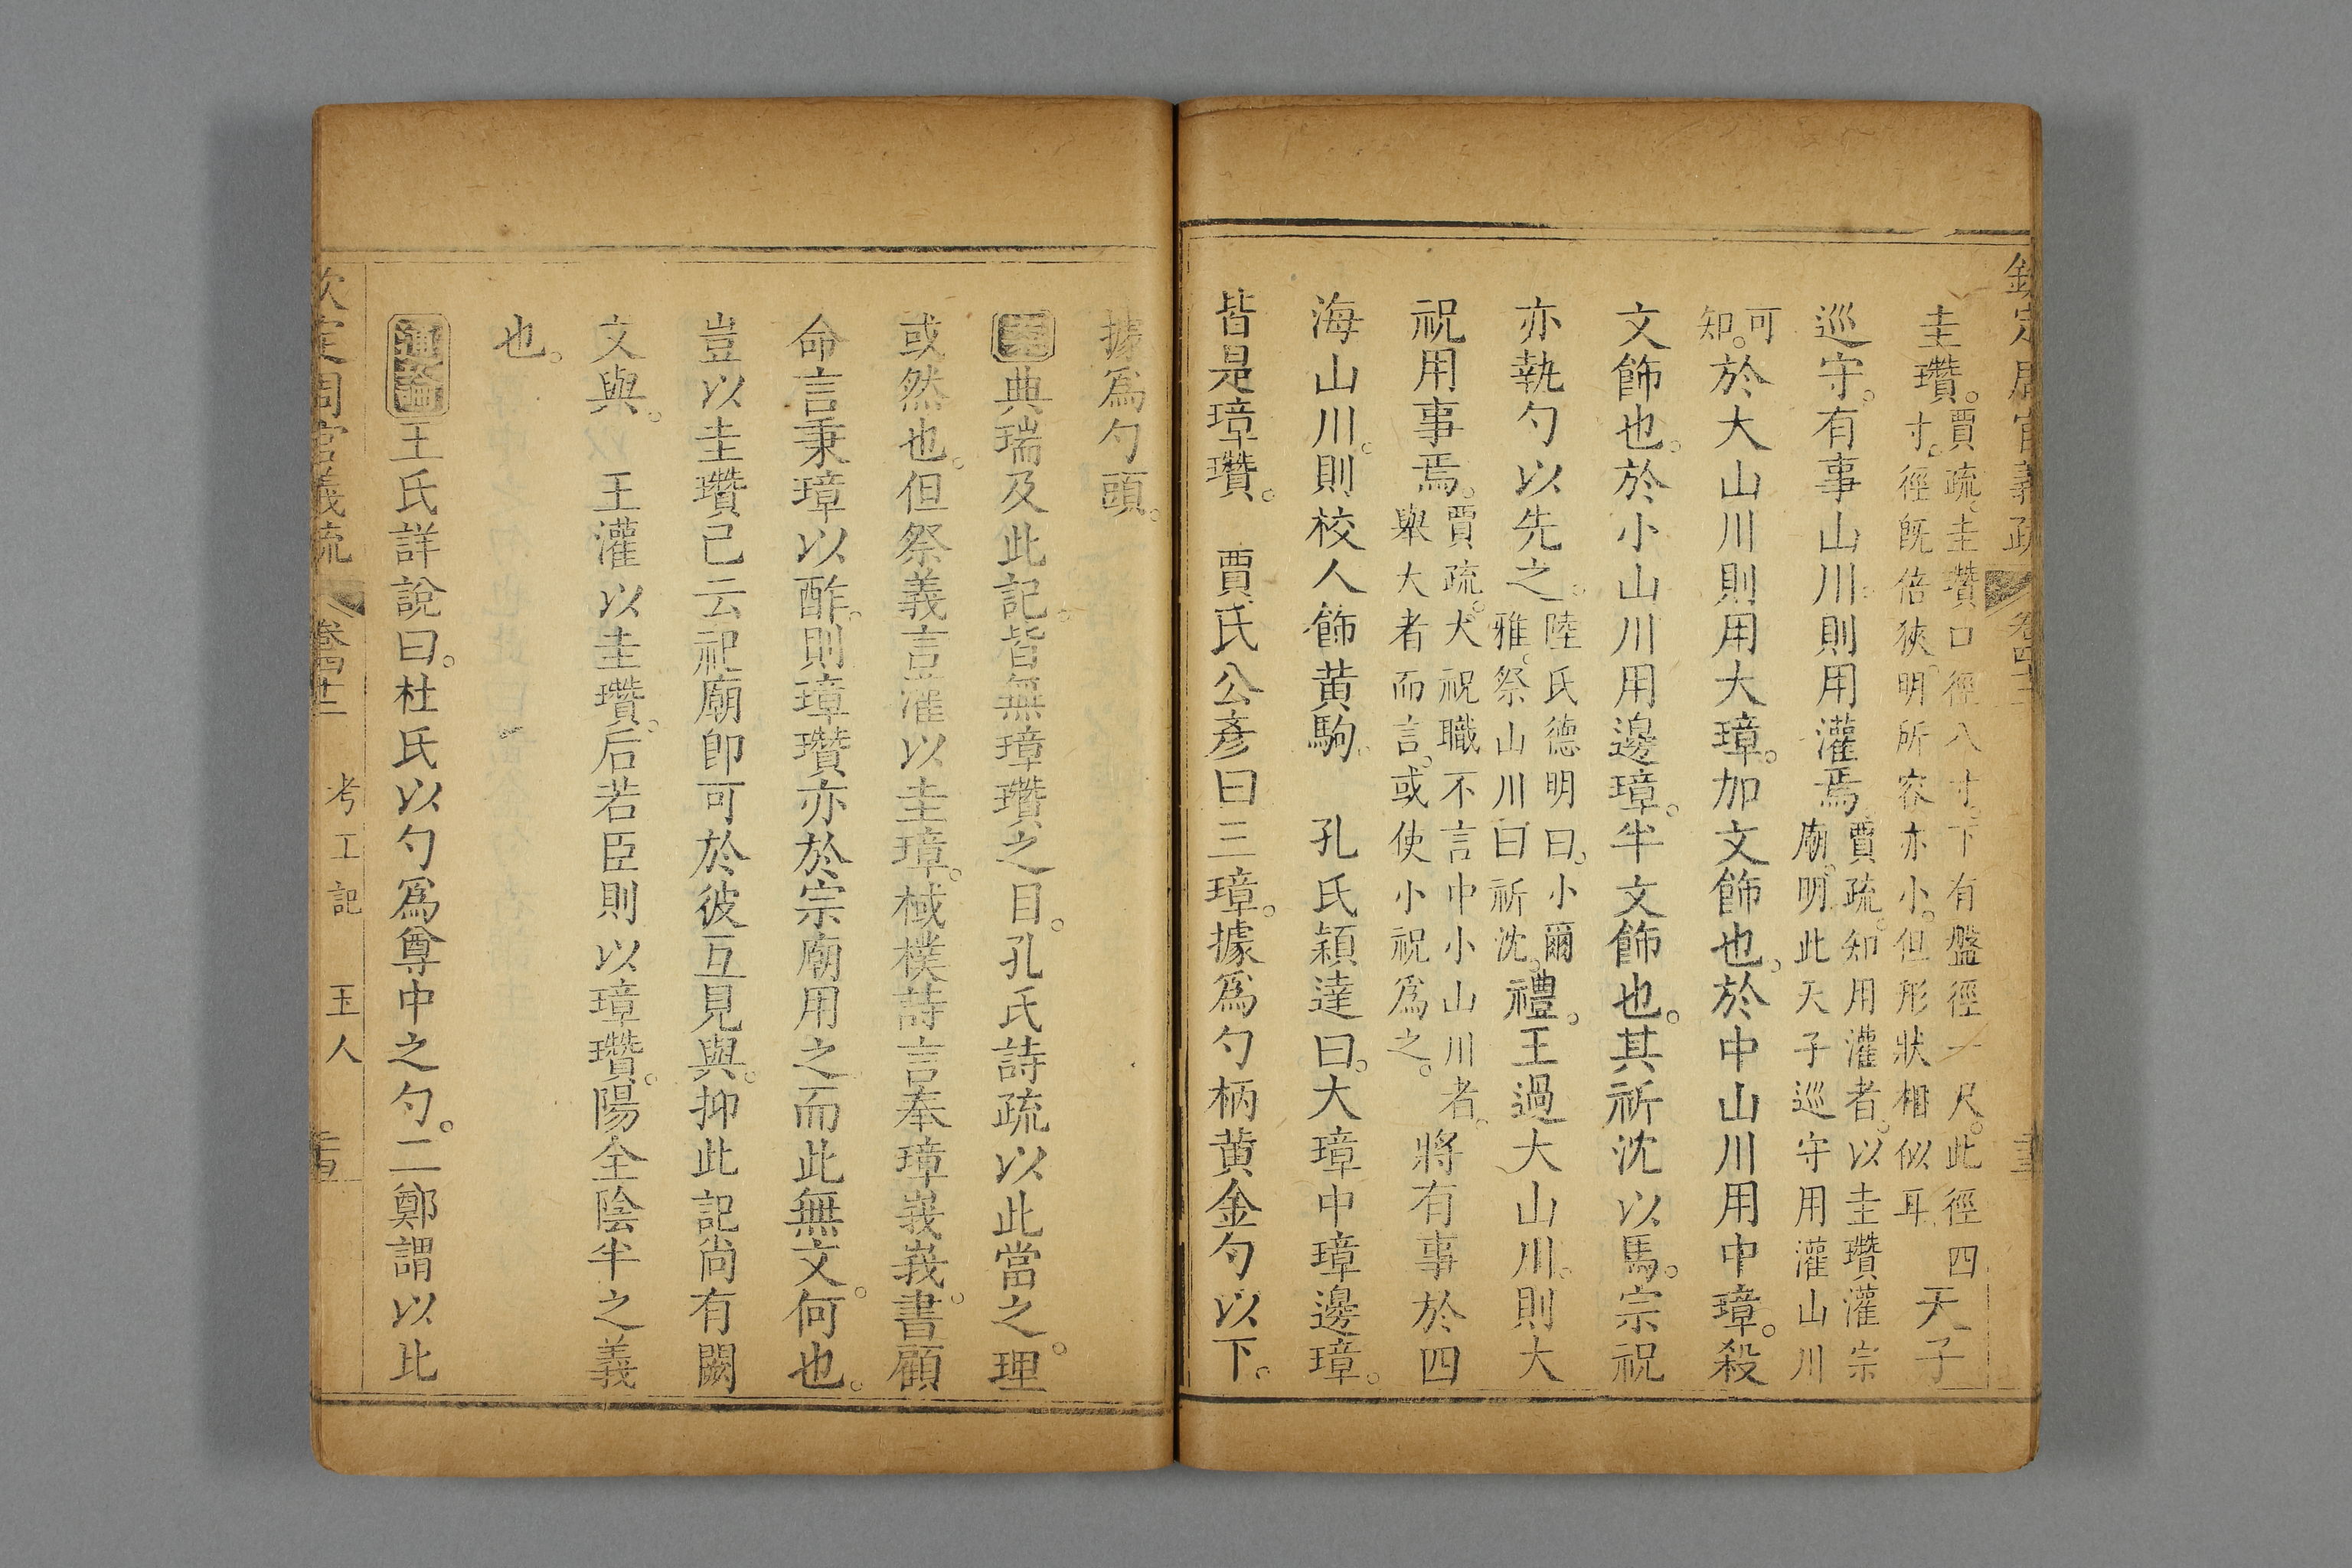 欽定周官義疏 卷四十二
圭瓚。賈疏。圭瓚口徑八寸。下有盤徑一尺。此徑四寸。徑旣倍狹。明所容亦小。但形狀相似耳。天子
巡守。有事山川。則用灌焉。賈疏。知用灌者。以圭瓚灌宗廟。明此天子巡守用灌山川
可知。於大山川則用大璋。加文飾也。於中山川用中璋。殺
文飾也。於小山川用邊璋。半文飾也。其祈沈以馬。宗祝
亦執勺以先之。陸氏德明曰。小爾雅。祭山川曰祈沈。禮。王過大山川。則大
祝用事焉。賈疏。大祝職不言中小山川者。舉大者而言。或使小祝爲之。將有事於四
海山川。則校人飾黃駒。 孔氏穎達曰。大璋中璋邊璋。
皆是璋瓚。 賈氏公彥曰三璋。據爲勺柄黃金勺以下。
據爲勺頭。
案典瑞及此記。皆無璋瓚之目。孔氏詩疏以此當之。理
或然也。但祭義言灌以圭璋。棫樸詩言奉璋峩峩。書顧
命言秉璋以酢。則璋瓚亦於宗廟用之而此無文。何也。
豈以圭瓚已云祀廟卽可於彼互見與。抑此記尚有闕
文與。 王灌以圭瓚。后若臣則以璋瓚。陽全陰半之義
也。
通論王氏詳說曰。杜氏以勺爲尊中之勺。二鄭謂以此
欽定周官義疏 卷四十二 考工記 玉人